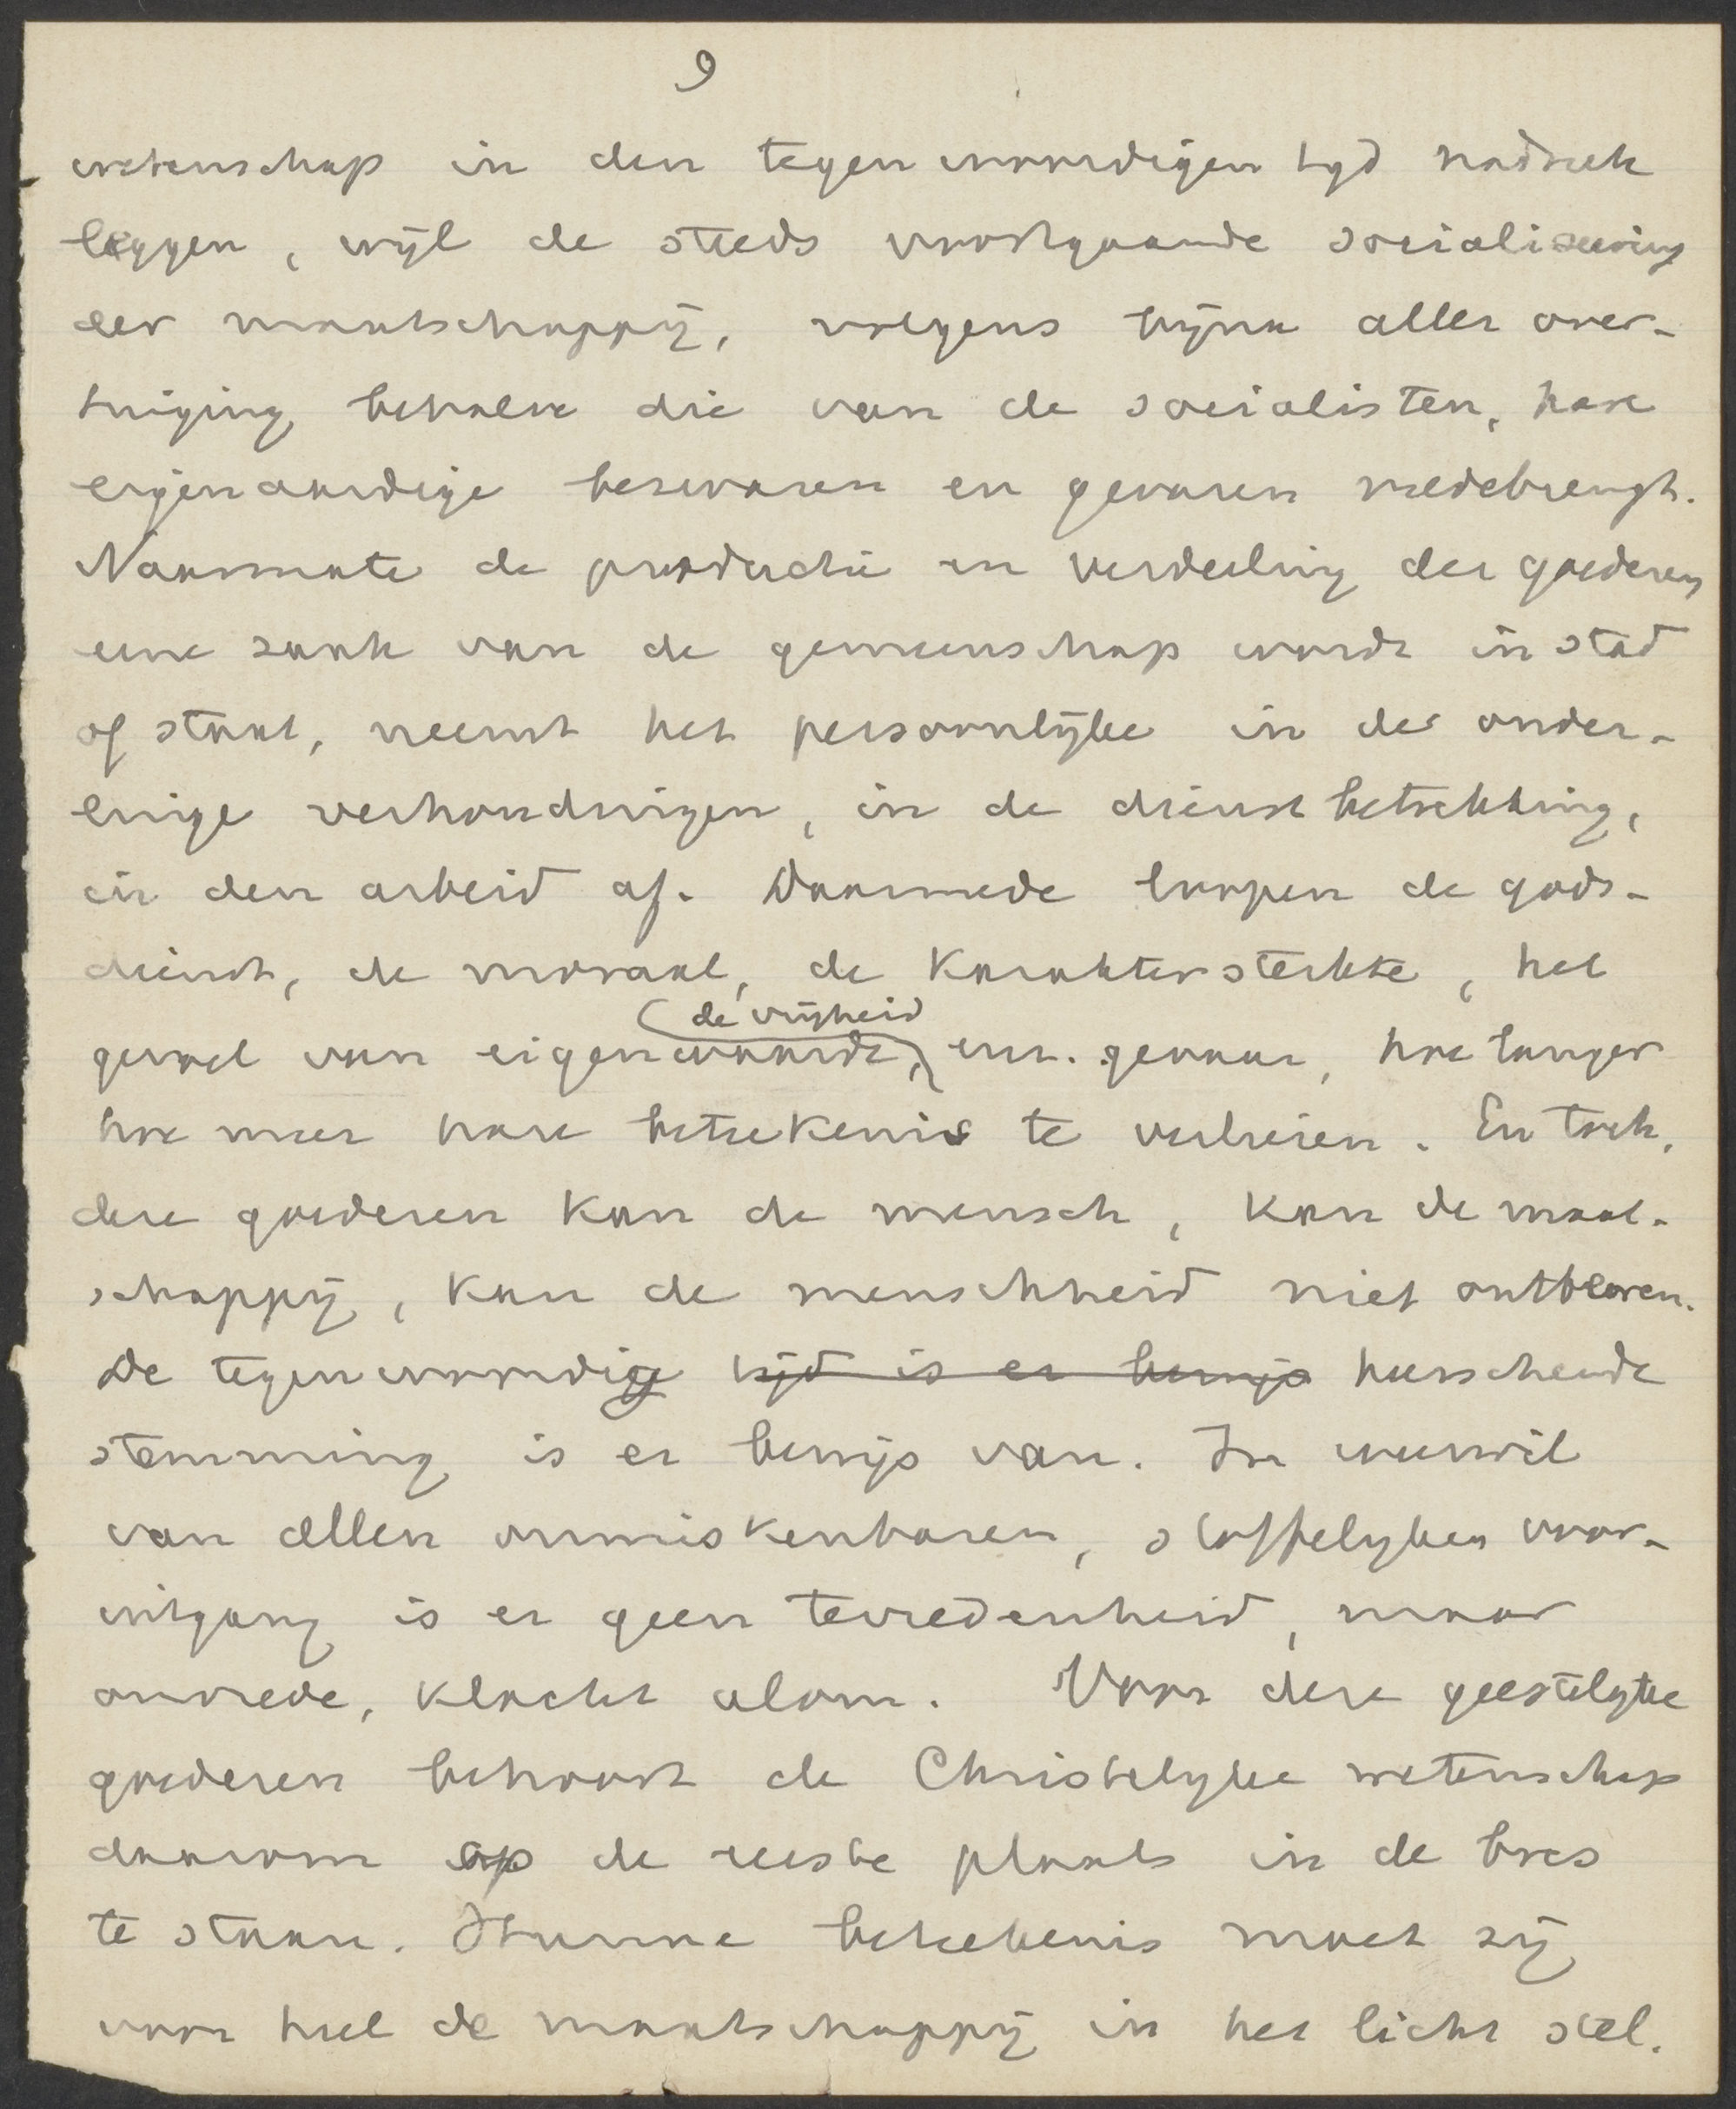 9
wetenschap in den tegenwoordigen tyd nadruk
leggen, wijl de steeds voortgaande socialiseering
der maatschappij, volgens bijna aller over-
tuiging behalve die van de socialisten, hare
eigenaardige bezwaren en gevaren medebrengt.
Naarmate de productie en verdeeling der goederen
eene zaak van de gemeenschap wordt in stad
of staat, neemt het persoonlijke in de onder-
linge verhoudingen, in de dienstbetrekking,
in den arbeid af. Daarmede loopen de gods-
dienst, de moraal, de karaktersterkte, het
de vrijheid
gevoel van eigenwaarde, enz. gevaar, hoe langer
hoe meer hare betekenis te verliezen. En toch,
deze goederen kan de mensch, kan de maat-
schappij, kan de menschheid niet ontberen.
De tegenwoordige tijd is er bewijs heerschende
stemming is er bewijs van. In weerwil
van allen onmiskenbaren, stoffelyken voor-
uitgang is er geen tevredenheid, maar
onvrede, klacht alom. Voor deze geestelyke
goederen behoort de Christelyke wetenschap
daarom op de eerste plaats in de bres
te staan. Hunne betekenis moet zij
voor heel de maatschappij in het licht stel-